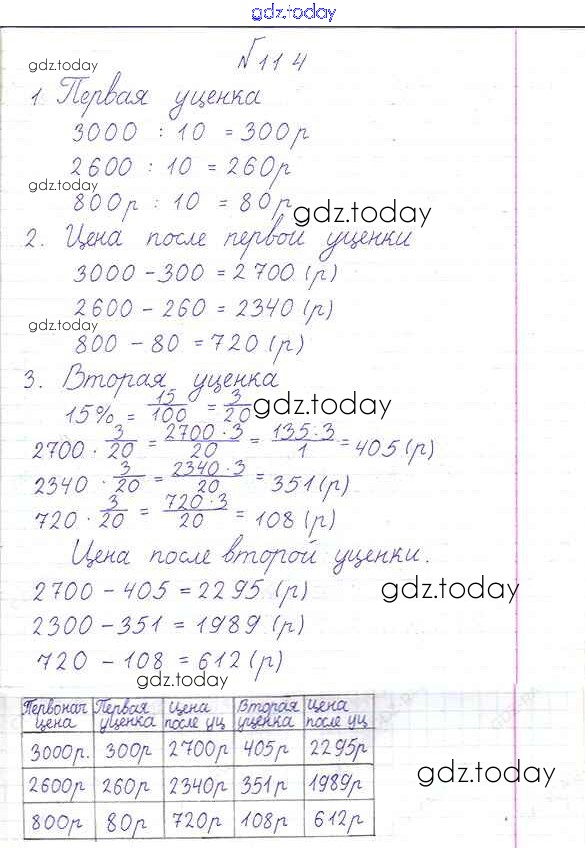 gdz.today
№ 114
gdz.today
1. Первая уценка
3000 : 10 = 300р
2600 : 10 = 260р
gdz.today
800р : 10 = 80р
gdz.today
2. Цена после первой уценки
3000 - 300 = 2700 (р)
2600 - 260 = 2340 (р)
gdz.today
800 - 80 = 720 (р)
3. Вторая уценка
15% = 15/100 = 3/20
gdz.today
2700 · 3/20 = 2700·3/20 = 135·3/1 = 405 (р)
2340 · 3/20 = 2340·3/20 = 351 (р)
720 · 3/20 = 720·3/20 = 108 (р)
Цена после второй уценки.
2700 - 405 = 2295 (р)
gdz.today
2300 - 351 = 1989 (р)
720 - 108 = 612 (р)
gdz.today
Первонач цена Первая уценка Цена после уц Вторая уценка Цена после уц
3000р. 300р 2700р 405р 2295р
gdz.today
2600р 260р 2340р 351р 1989р
800р 80р 720р 108р 612р